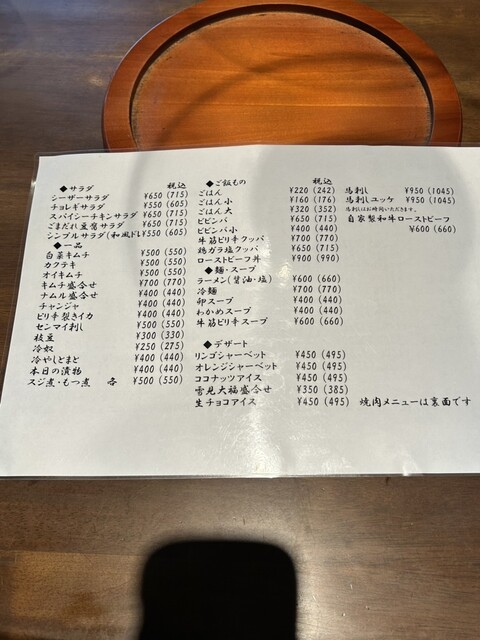 ◆サラダ 税込
シーザーサラダ ¥650 (715)
チョレギサラダ ¥550 (605)
スパイシーチキンサラダ ¥650 (715)
ごまだれ豆腐サラダ ¥650 (715)
シンプルサラダ(和風ドレ) ¥550 (605)
◆一品
白菜キムチ ¥500 (550)
カクテキ ¥500 (550)
オイキムチ ¥500 (550)
キムチ盛合せ ¥700 (770)
ナムル盛合せ ¥400 (440)
チャンジャ ¥400 (440)
ピリ辛裂きイカ ¥400 (440)
センマイ刺し ¥500 (550)
枝豆 ¥300 (330)
冷奴 ¥250 (275)
冷やしとまと ¥400 (440)
本日の漬物 ¥400 (440)
スジ煮・もつ煮 各 ¥500 (550)
◆ご飯もの 税込
ごはん ¥220 (242)
ごはん小 ¥160 (176)
ごはん大 ¥320 (352)
ビビンバ ¥650 (715)
ビビンバ小 ¥400 (440)
牛筋ピリ辛クッパ ¥700 (770)
鶏ガラ塩クッパ ¥650 (715)
ローストビーフ丼 ¥900 (990)
◆麺・スープ
ラーメン(醤油・塩) ¥600 (660)
冷麺 ¥700 (770)
卵スープ ¥400 (440)
わかめスープ ¥400 (440)
牛筋ピリ辛スープ ¥600 (660)
◆デザート
リンゴシャーベット ¥450 (495)
オレンジシャーベット ¥450 (495)
ココナッツアイス ¥450 (495)
雪見大福盛合せ ¥350 (385)
生チョコアイス ¥450 (495)
馬刺し ¥950 (1045)
馬刺しユッケ ¥950 (1045)
馬刺しはお時間いただきます。
自家製和牛ローストビーフ
¥600 (660)
焼肉メニューは裏面です